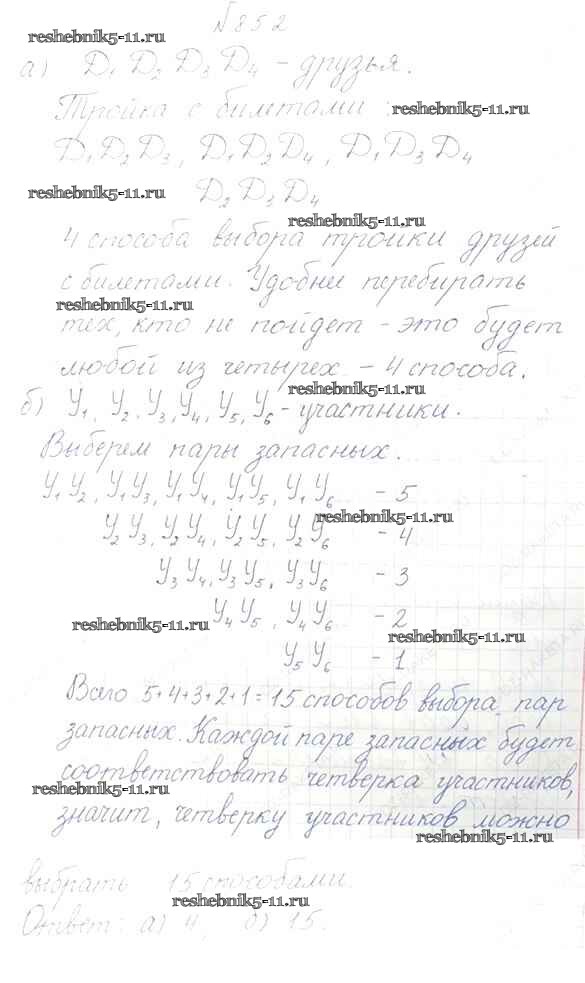 №852
reshebnik5-11.ru
а) Д₁ Д₂ Д₃ Д₄ – друзья.
Тройка с билетами :
reshebnik5-11.ru
Д₁Д₂Д₃, Д₁Д₂Д₄, Д₁Д₃Д₄
reshebnik5-11.ru
Д₂Д₃Д₄
reshebnik5-11.ru
4 способа выбора тройки друзей
с билетами. Удобнее перебирать
reshebnik5-11.ru
тех, кто не пойдет – это будет
любой из четырех – 4 способа.
reshebnik5-11.ru
б) У₁, У₂, У₃, У₄, У₅, У₆ – участники.
Выберем пары запасных.
У₁У₂, У₁У₃, У₁У₄, У₁У₅, У₁У₆ – 5
reshebnik5-11.ru
У₂У₃, У₂У₄, У₂У₅, У₂У₆ – 4
У₃У₄, У₃У₅, У₃У₆ – 3
У₄У₅, У₄У₆ – 2
reshebnik5-11.ru
reshebnik5-11.ru
У₅У₆ – 1
Всего 5+4+3+2+1=15 способов выбора пар
запасных. Каждой паре запасных будет
соответствовать четверка участников,
reshebnik5-11.ru
значит, четверку участников можно
reshebnik5-11.ru
выбрать 15 способами.
reshebnik5-11.ru
Ответ: а) 4, б) 15.